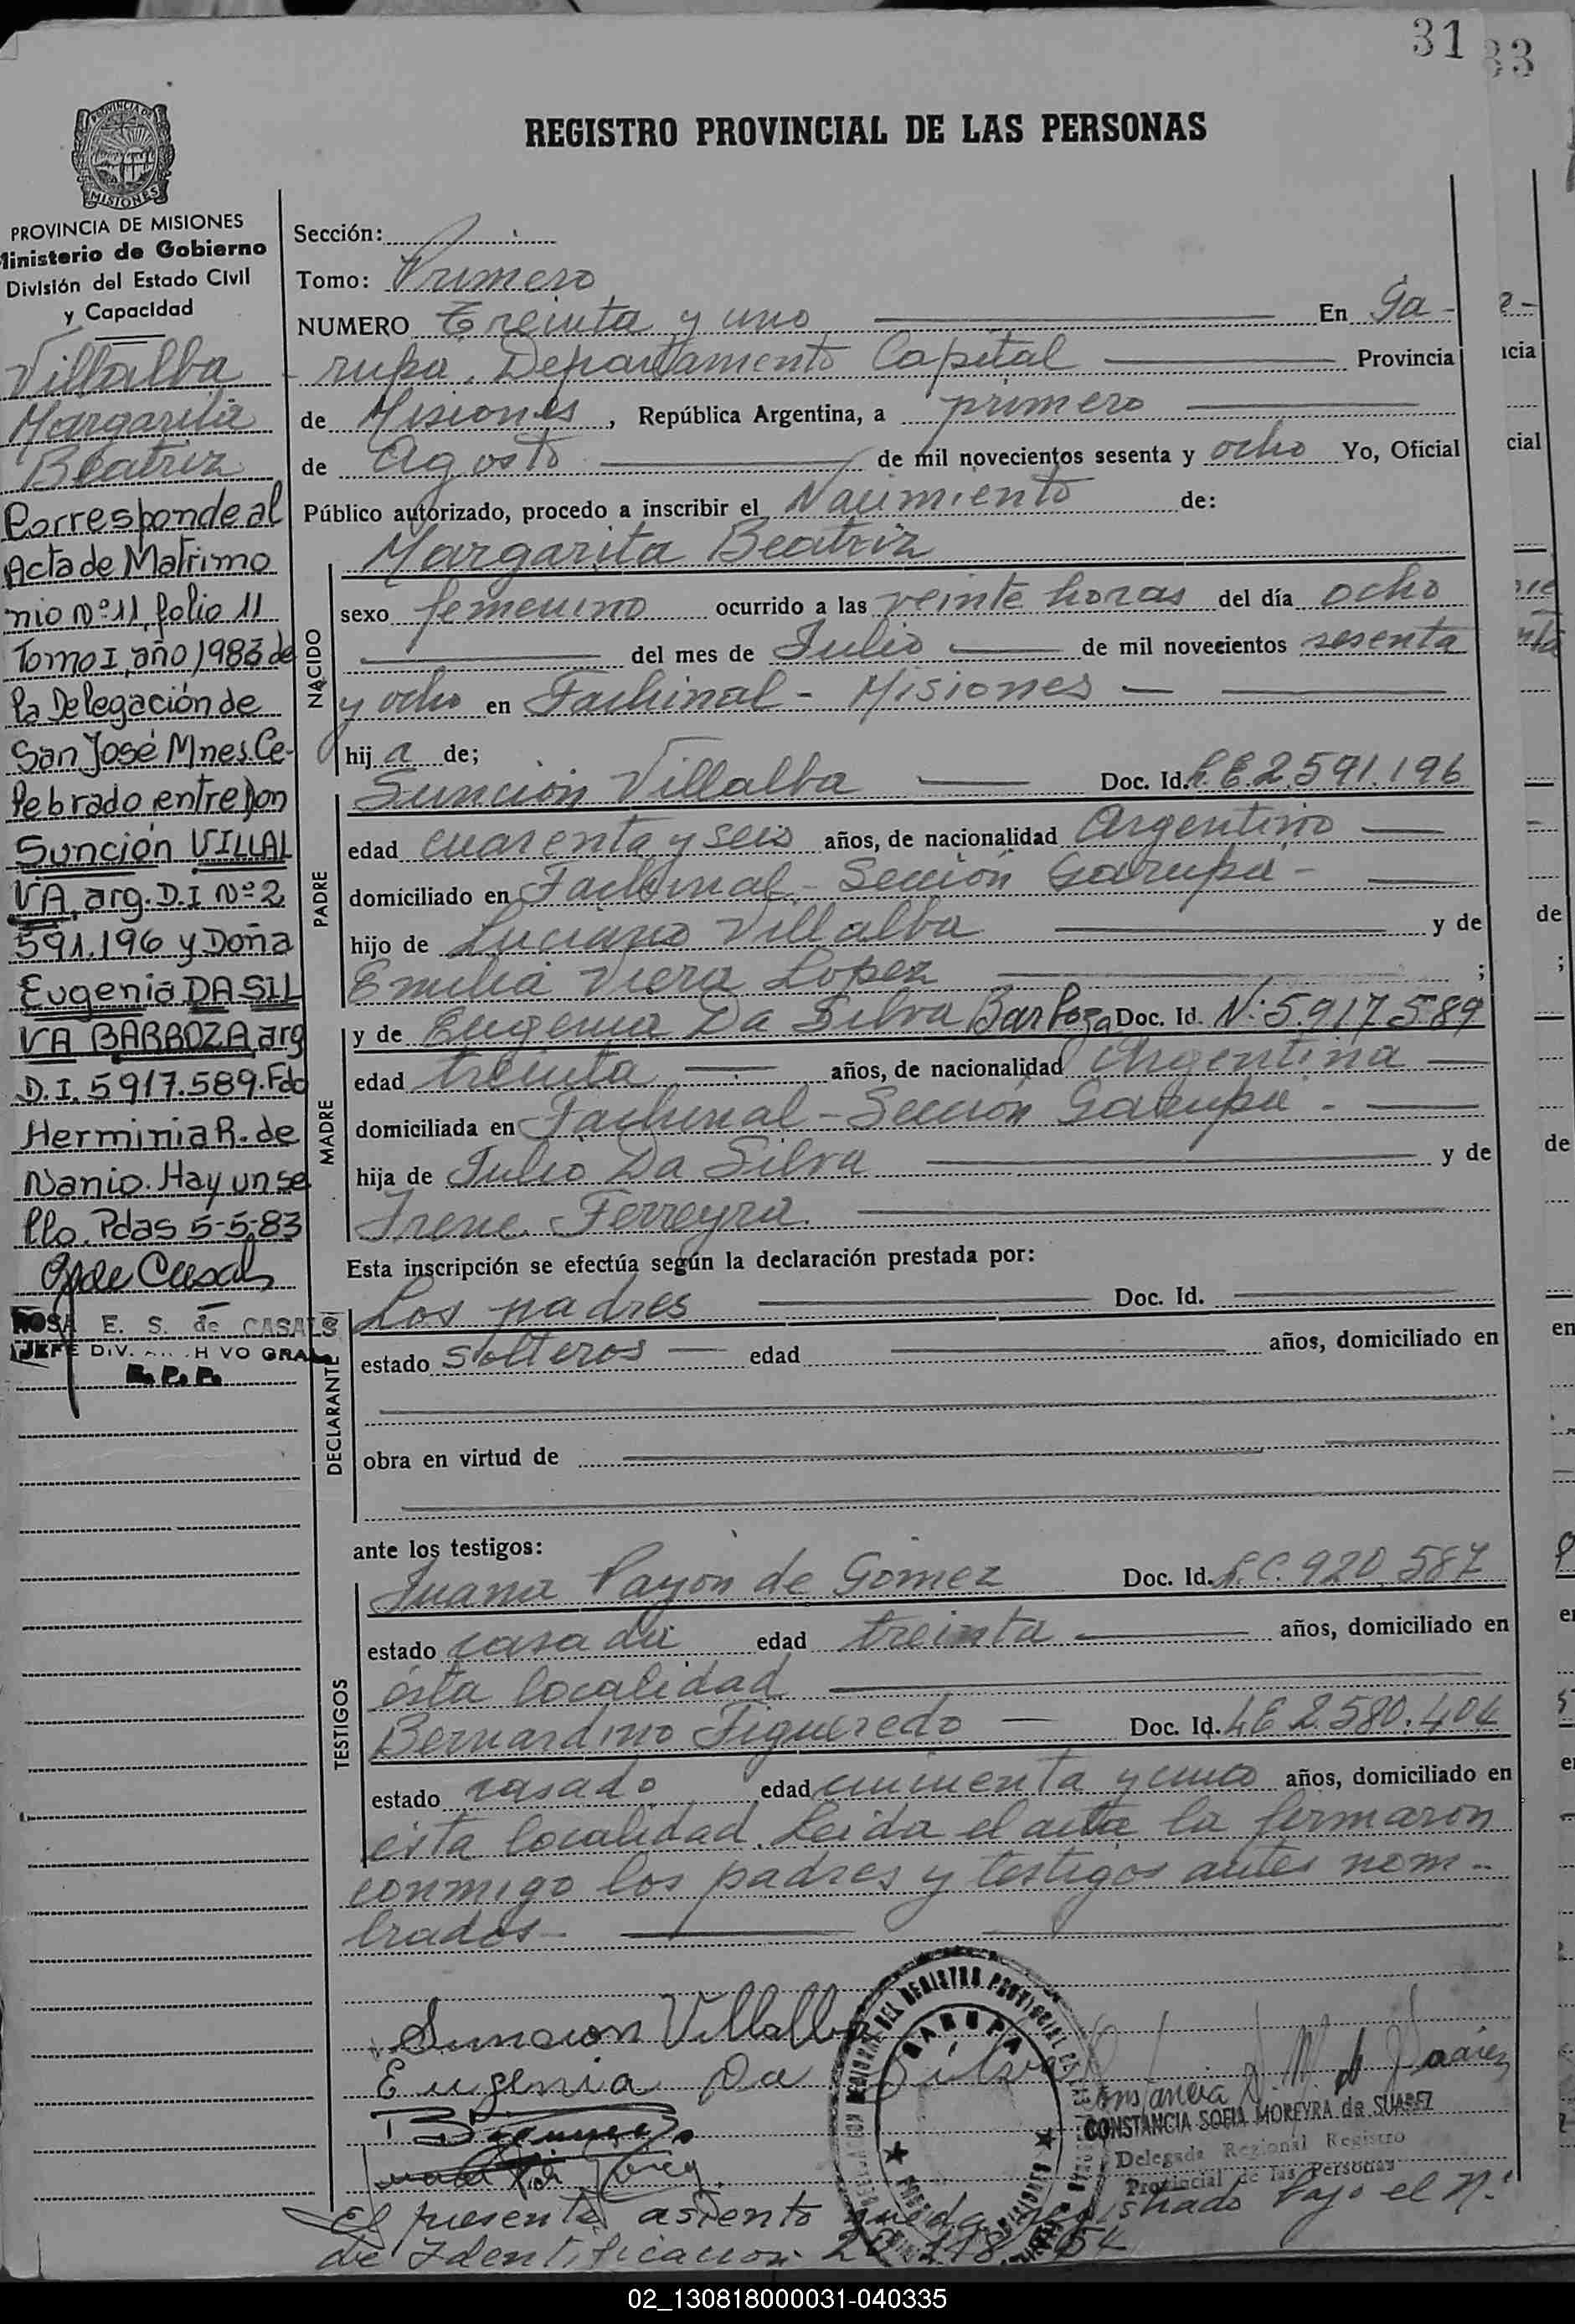 31 33
REGISTRO PROVINCIAL DE LAS PERSONAS
PROVINCIA DE
MISIONES
PROVINCIA DE MISIONES
Ministerio de Gobierno
División del Estado Civil
y Capacidad
Villalba
Margarita
Beatriz
Corresponde al
Acta de Matrimo
nio Nº 11, folio 11
Tomo I, año 1983 de
la Delegación de
San José Mnes. Ce-
lebrado entre Don
Sunción VILLAL
VA, arg. D.I Nº 2
591.196 y Doña
Eugenia DA SIL
VA BARBOZA, arg
D.I. 5917.589. Fdo
Herminia R. de
Nanio. Hay un se
llo. Pdas 5-5-83
ROSA E. S. de CASALS
JEFE DIV. GRAL
R. P. P.
Sección:
Tomo: Primero
NUMERO Treinta y uno En Ga-
rupa, Departamento Capital Provincia
de Misiones, República Argentina, a primero
de Agosto de mil novecientos sesenta y ocho Yo, Oficial
Público autorizado, procedo a inscribir el Nacimiento de:
Margarita Beatriz
NACIDO
sexo femenino ocurrido a las veinte horas del día ocho
del mes de Julio de mil novecientos sesenta
y ocho en Fachinal - Misiones
hija de;
PADRE
Sunción Villalba Doc. Id. L.E. 2.591.196
edad cuarenta y seis años, de nacionalidad Argentino
domiciliado en Fachinal - Sección Garupá -
hijo de Luciano Villalba y de
Emilia Viera Lopez ;
MADRE
y de Eugenia Da Silva Barboza Doc. Id. N: 5.917.589
edad treinta años, de nacionalidad Argentina
domiciliada en Fachinal - Sección Garupá -
hija de Julio Da Silva y de
Irene Ferreyra.
Esta inscripción se efectúa según la declaración prestada por:
DECLARANTE
Los padres Doc. Id.
estado solteros edad años, domiciliado en
obra en virtud de
ante los testigos:
TESTIGOS
Juana Payon de Gomez Doc. Id. L.C. 920.587
estado casada edad treinta años, domiciliado en
ésta localidad
Bernardino Figueredo Doc. Id. L E 2.580.404
estado casado edad cincuenta y cinco años, domiciliado en
ésta localidad. Leida el acta la firmaron
conmigo los padres y testigos antes nom-
brados-
Suncion Villalba
Eugenia Da Silva
GARUPA
CONSTANCIA SOFIA MOREYRA de SUAREZ
Delegada Regional Registro
Provincial de las Personas
El presente asiento queda registrado bajo el N.º
de Identificacion
02_130818000031-040335